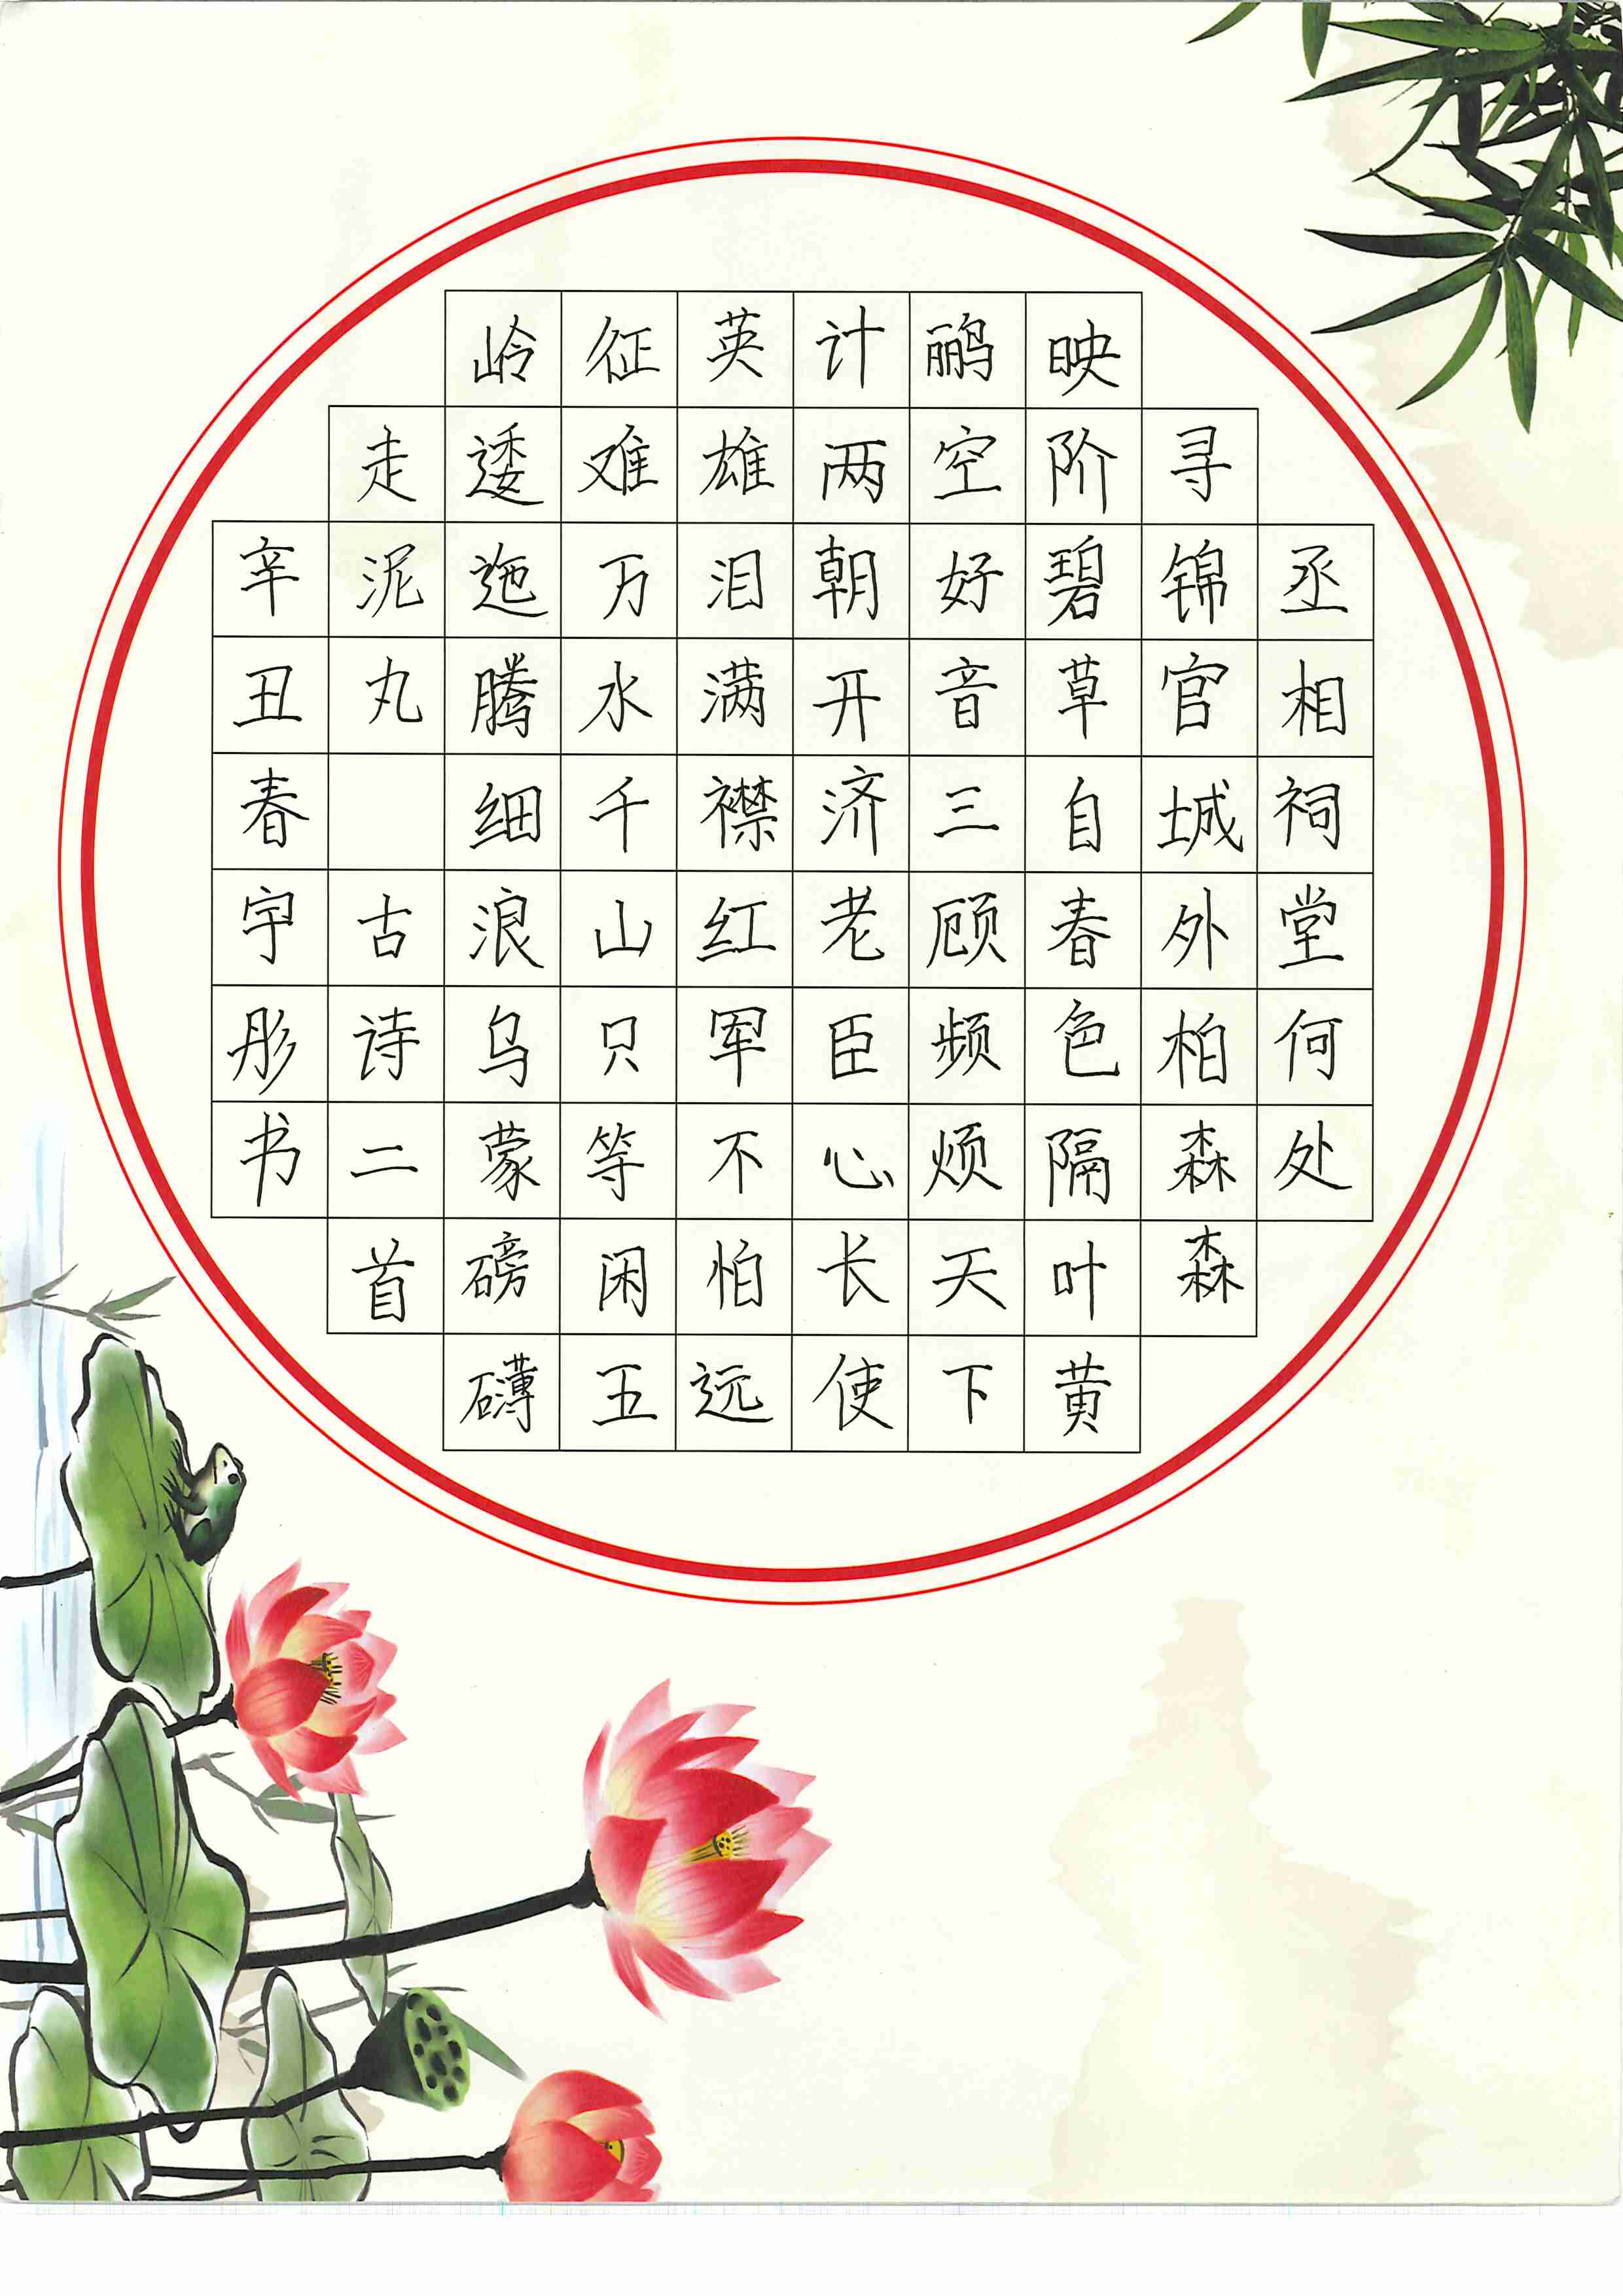 丞相祠堂何处
寻锦官城外柏森森
映阶碧草自春色隔叶黄
鹂空好音三顾频烦天下
计两朝开济老臣心长使
英雄泪满襟红军不怕远
征难万水千山只等闲五
岭逶迤腾细浪乌蒙磅礴
走泥丸 古诗二首
辛丑春宇彤书